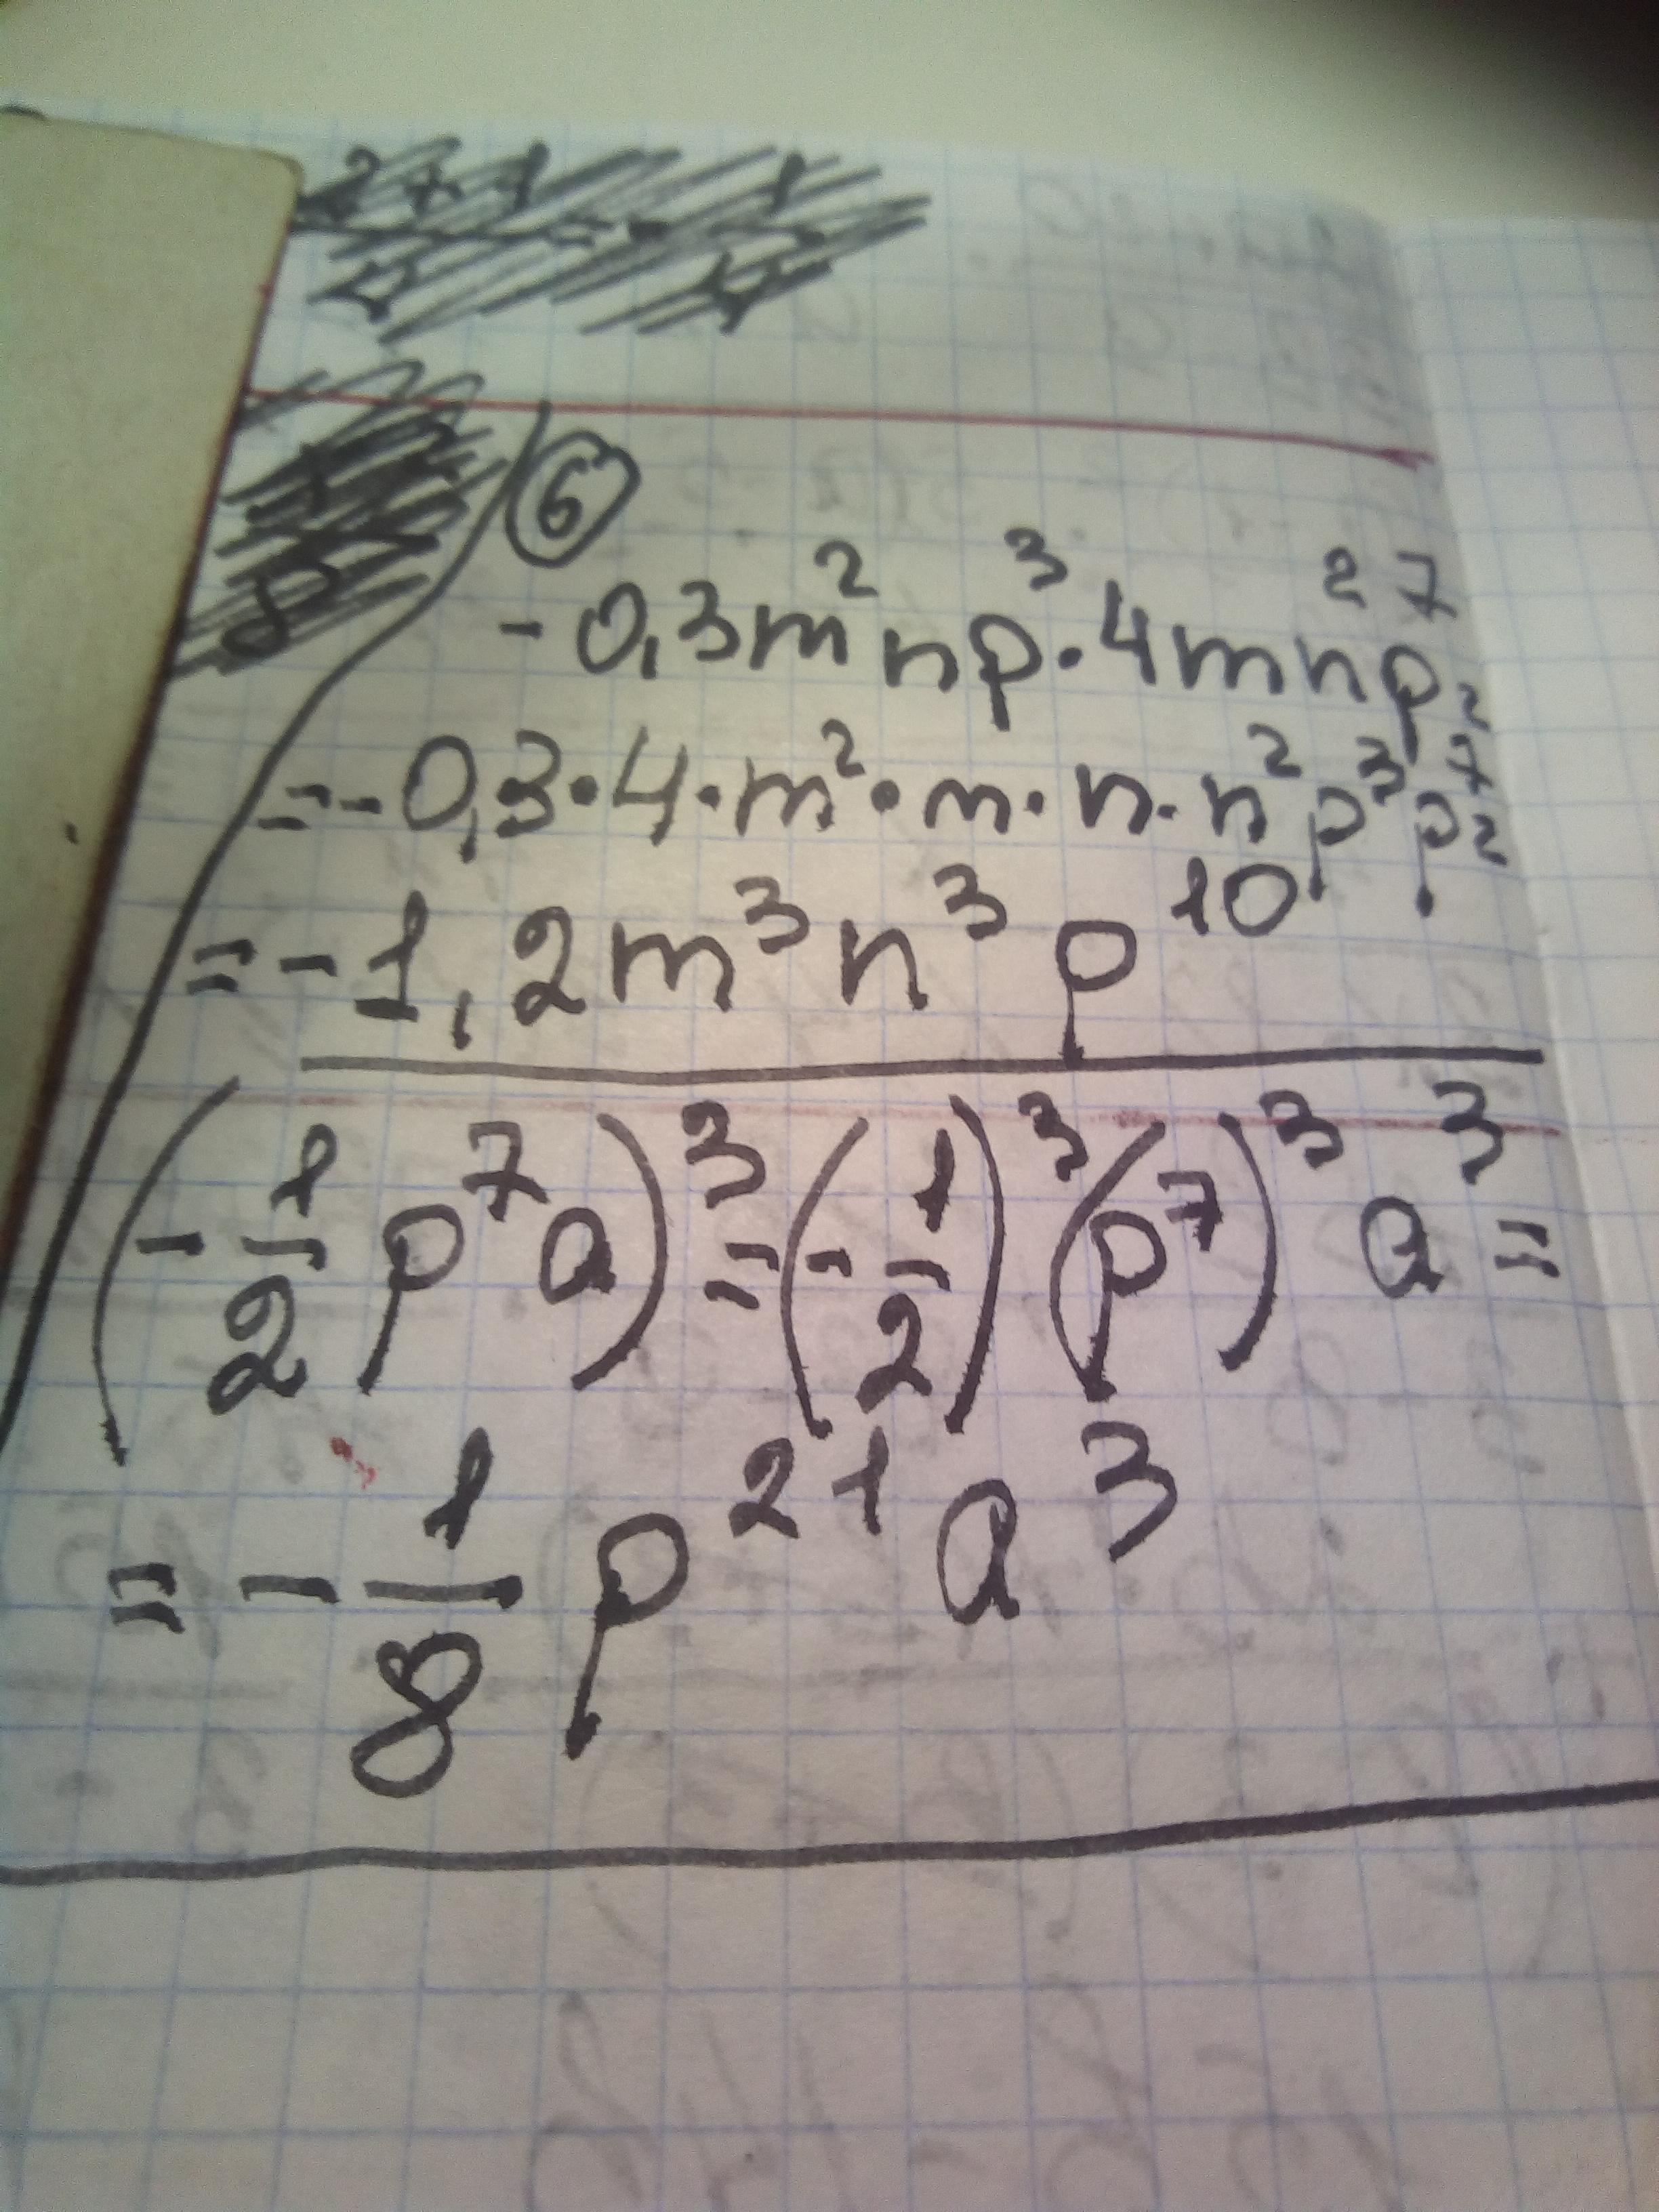 6
-0,3m²np³·4mn²p⁷=
=-0,3·4·m²·m·n·n²p³p⁷=
=-1,2m³n³p¹⁰
(-1/2 p⁷a)³=(-1/2)³(p⁷)³a³=
=-1/8 p²¹a³